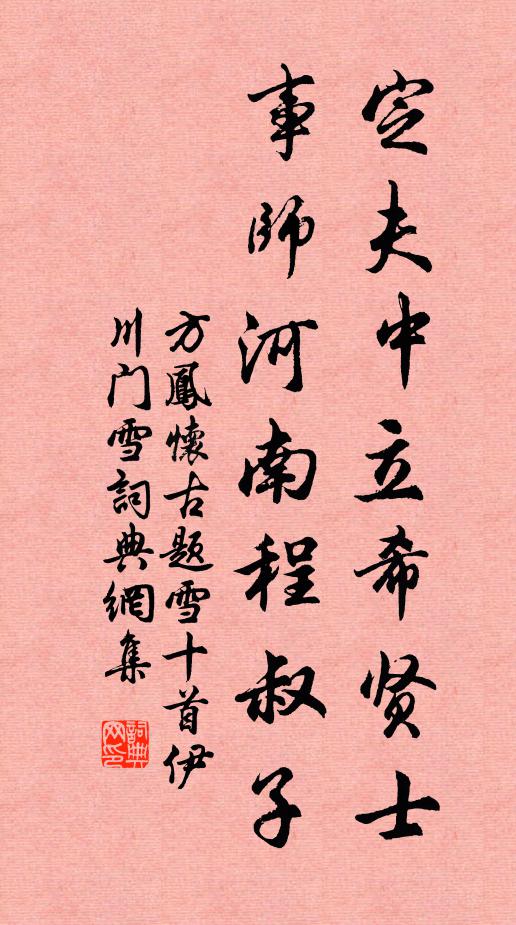 定夫中立希贤士
事師河南程叔子
方鳳懷古题雪十首伊
川门雪詞典網集
詞典
网印